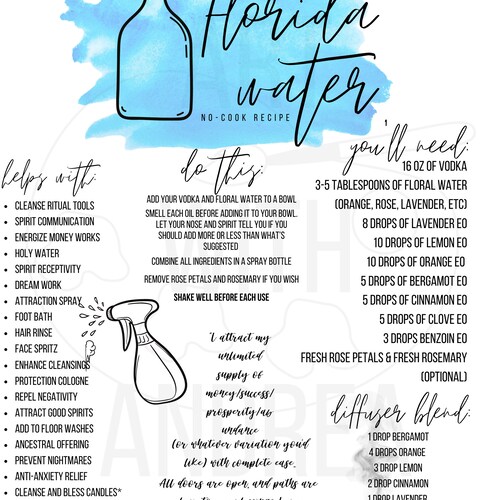 Florida
water
NO-COOK RECIPE
helps with:
• CLEANSE RITUAL TOOLS
• SPIRIT COMMUNICATION
• ENERGIZE MONEY WORKS
• HOLY WATER
• SPIRIT RECEPTIVITY
• DREAM WORK
• ATTRACTION SPRAY
• FOOT BATH
• HAIR RINSE
• FACE SPRITZ
• ENHANCE CLEANSINGS
• PROTECTION COLOGNE
• REPEL NEGATIVITY
• ATTRACT GOOD SPIRITS
• ADD TO FLOOR WASHES
• ANCESTRAL OFFERING
• PREVENT NIGHTMARES
• ANTI-ANXIETY RELIEF
• CLEANSE AND BLESS CANDLES*
do this:
ADD YOUR VODKA AND FLORAL WATER TO A BOWL
SMELL EACH OIL BEFORE ADDING IT TO YOUR BOWL.
LET YOUR NOSE AND SPIRIT TELL YOU IF YOU
SHOULD ADD MORE OR LESS THAN WHAT'S
SUGGESTED
COMBINE ALL INGREDIENTS IN A SPRAY BOTTLE
REMOVE ROSE PETALS AND ROSEMARY IF YOU WISH
SHAKE WELL BEFORE EACH USE
"I attract my
unlimited
supply of
money/success/
prosperity/ab
undance
(or whatever variation you'd
like) with complete ease.
All doors are open, and paths are
you'll need:
16 OZ OF VODKA
3-5 TABLESPOONS OF FLORAL WATER
(ORANGE, ROSE, LAVENDER, ETC)
8 DROPS OF LAVENDER EO
10 DROPS OF LEMON EO
10 DROPS OF ORANGE EO
5 DROPS OF BERGAMOT EO
5 DROPS OF CINNAMON EO
5 DROPS OF CLOVE EO
3 DROPS BENZOIN EO
FRESH ROSE PETALS & FRESH ROSEMARY
(OPTIONAL)
diffuser blend:
1 DROP BERGAMOT
4 DROPS ORANGE
3 DROP LEMON
2 DROP CINNAMON
1 DROP LAVENDER
ANDREA